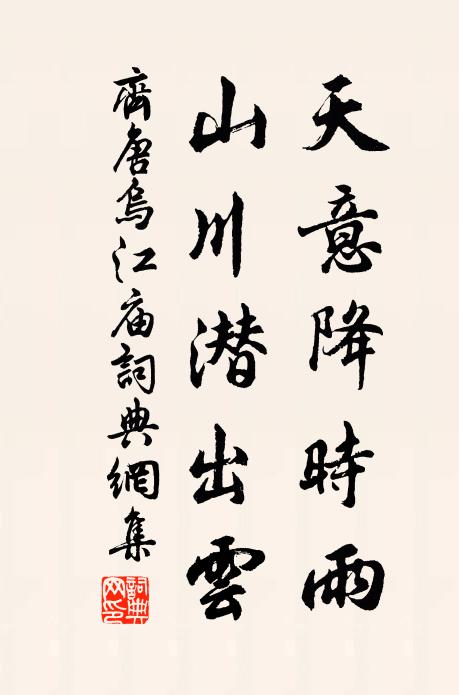 天意降時雨
山川潛出雲
齊唐烏江庙詞典網集
詞典網印